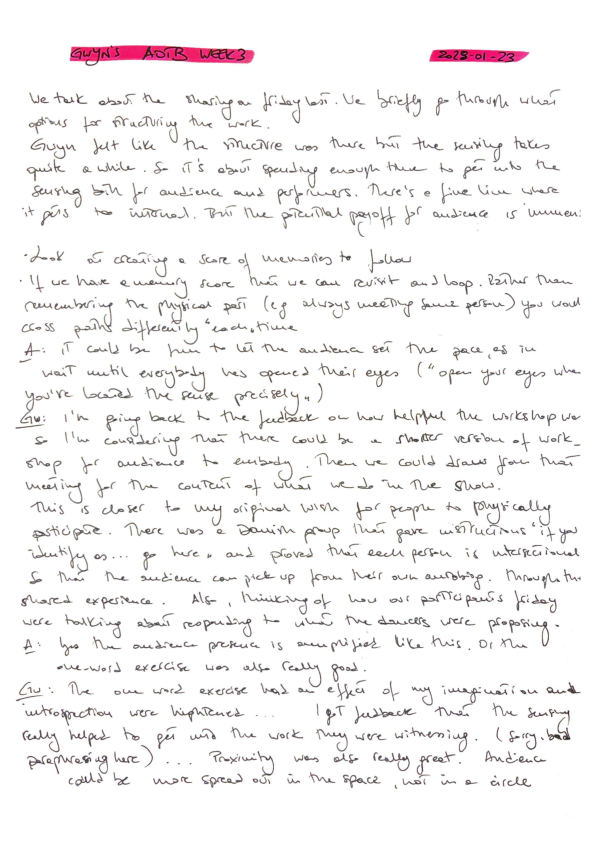 GWYN'S ADTB WEEK3 2023-01-23
We talk about the sharing on friday last. We briefly go through what
options for structuring the work.
Gwyn felt like the structure was there but the sensing takes
quite a while. So it's about spending enough time to get into the
sensing both for audience and performers. There's a fine line where
it gets to internal. But the potential payoff for audience is immens
· Look at creating a score of memories to follow
· If we have a memory score that we can revisit and loop. Rather than
remembering the physical part (eg always meeting same person) you would
cross paths differently each time
A: it could be fun to let the audience set the pace, as in
wait until everybody has opened their eyes ("open your eyes when
you've located the sense precisely")
Gw: I'm going back to the feedback on how helpful the workshop was
so I'm considering that there could be a shorter version of work-
shop for audience to embody. Then we could draw from that
meeting for the content of what we do in the show.
This is closer to my original wish for people to physically
participate. There was a Danish group that gave instructions "if you
identify as... go here" and proved that each person is intersectional
So that the audience can pick up from their own autobiog. Through the
shared experience. Also, thinking of how our participants friday
were talking about responding to what the dancers were proposing.
A: yes the audience presence is amplified like this. Or the
one-word exercise was also really good.
Gw: The one word exercise had an effect of my imagination and
introspection were hightened ... I got feedback that the sensing
really helped to get into the work they were witnessing. (sorry, bad
paraphrasing here) ... Proximity was also really great. Audience
could be more spread out in the space, not in a circle